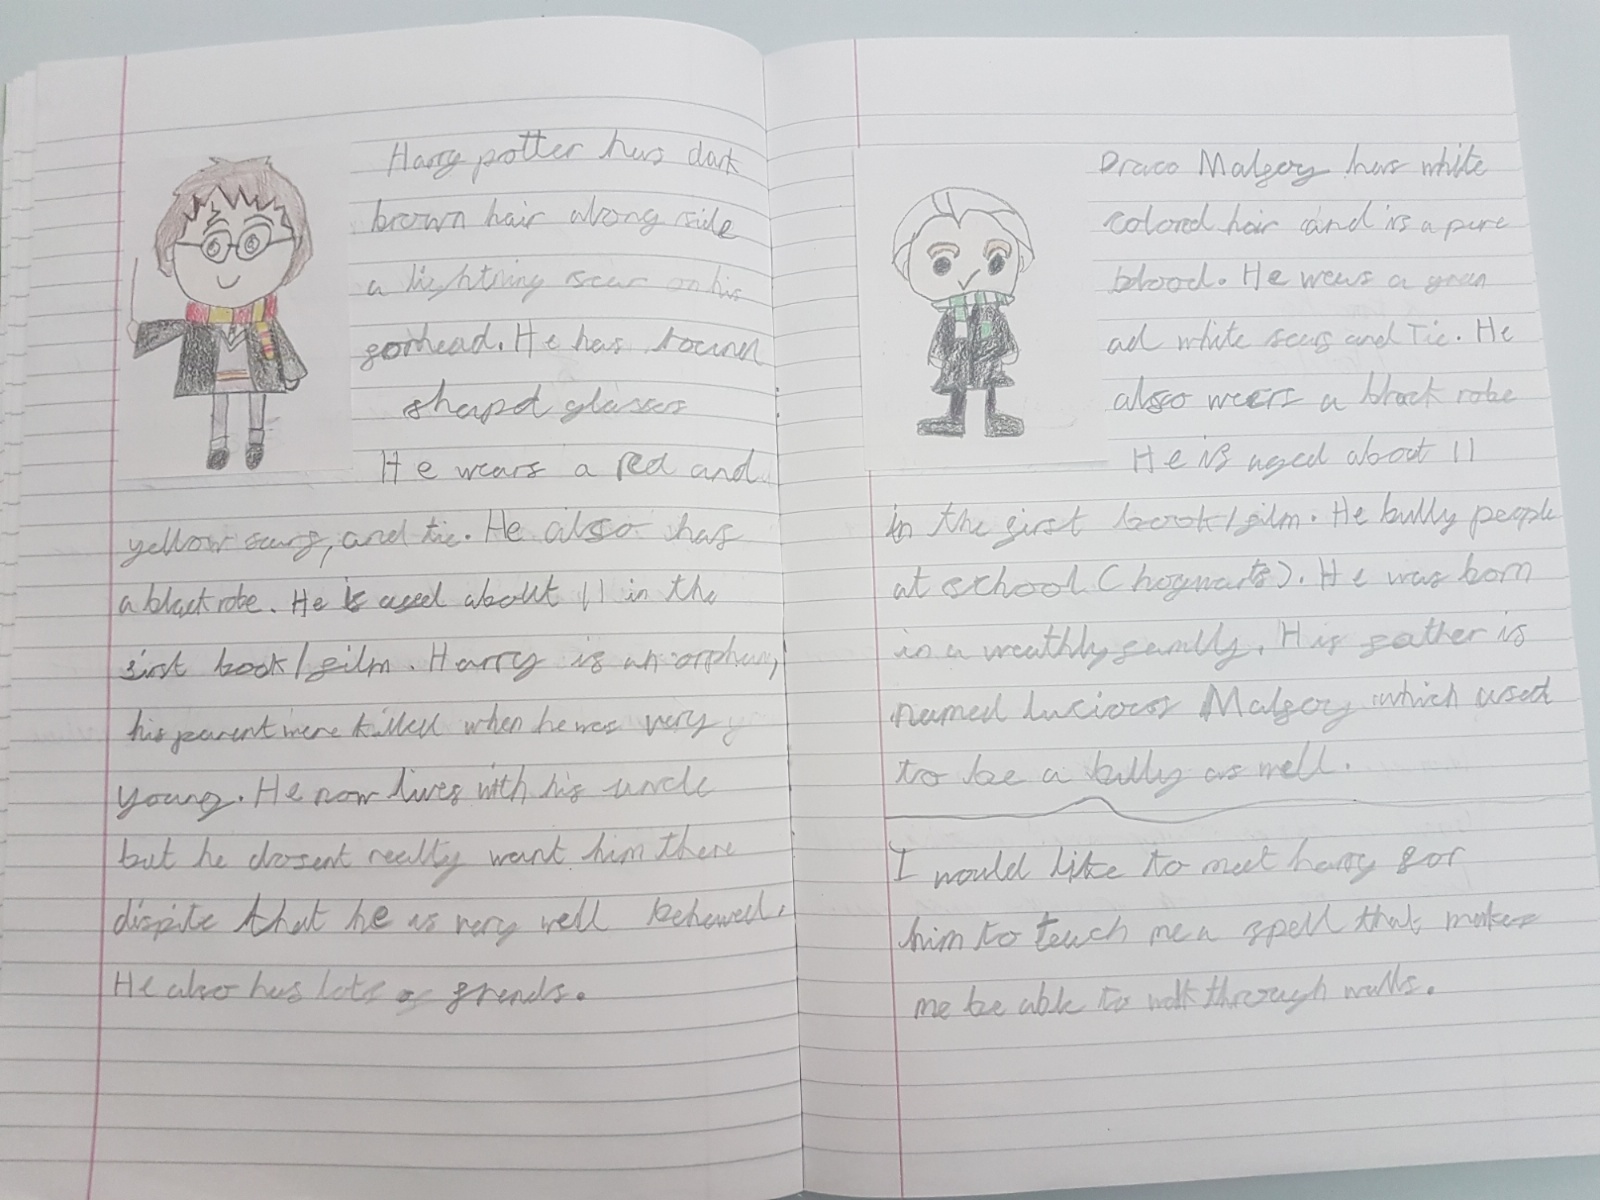 Harry potter has dark
brown hair along side
a lightning scar on his
forhead. He has round
shaped glasses
He wears a red and
yellow scarf, and tie. He also has
a black robe. He is aged about 11 in the
first book/film. Harry is an orphan,
his parent were killed when he was very
young. He now lives with his uncle
but he dosent really want him there
dispite that he is very well behewed.
He also has lots of friends.
Draco Malfory has white
colored hair and is a pure
blood. He wears a green
ad white scarf and Tie. He
also weers a black robe
He is aged about 11
in the first book/film. He bully people
at school (hogwarts). He was born
in a weathly family. His father is
named lucious Malfory which used
to be a bully as well.
I would like to meet harry for
him to teach me a spell that makes
me be able to walk through walls.